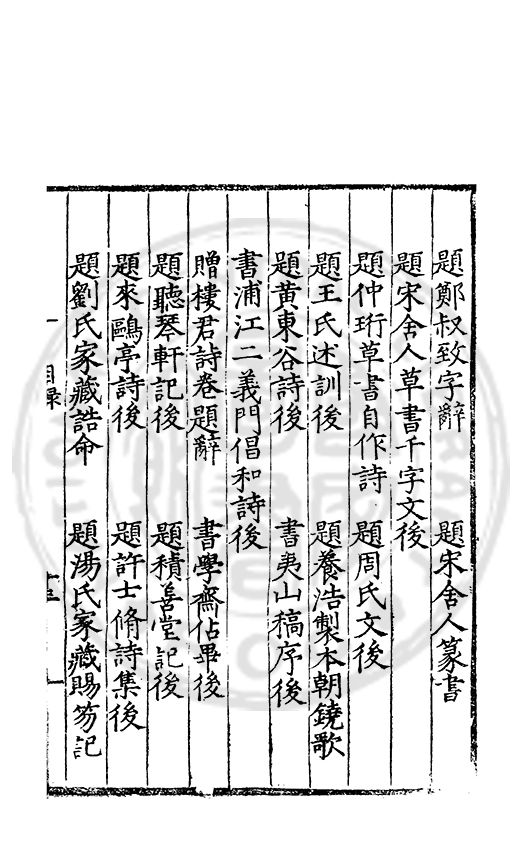 題鄭叔致字辭　題宋舍人篆書
題宋舍人草書千字文後
題仲珩草書自作詩　題周氏文後
題王氏述訓後　題養浩製本朝鐃歌
題黃東谷詩後　書夷山稿序後
書浦江二義門倡和詩後
贈樓君詩卷題辭　書學齋佔畢後
題聽琴軒記後　題積善堂記後
題來鷗亭詩後　題許士脩詩集後
題劉氏家藏誥命　題湯氏家藏賜笏記
目錄